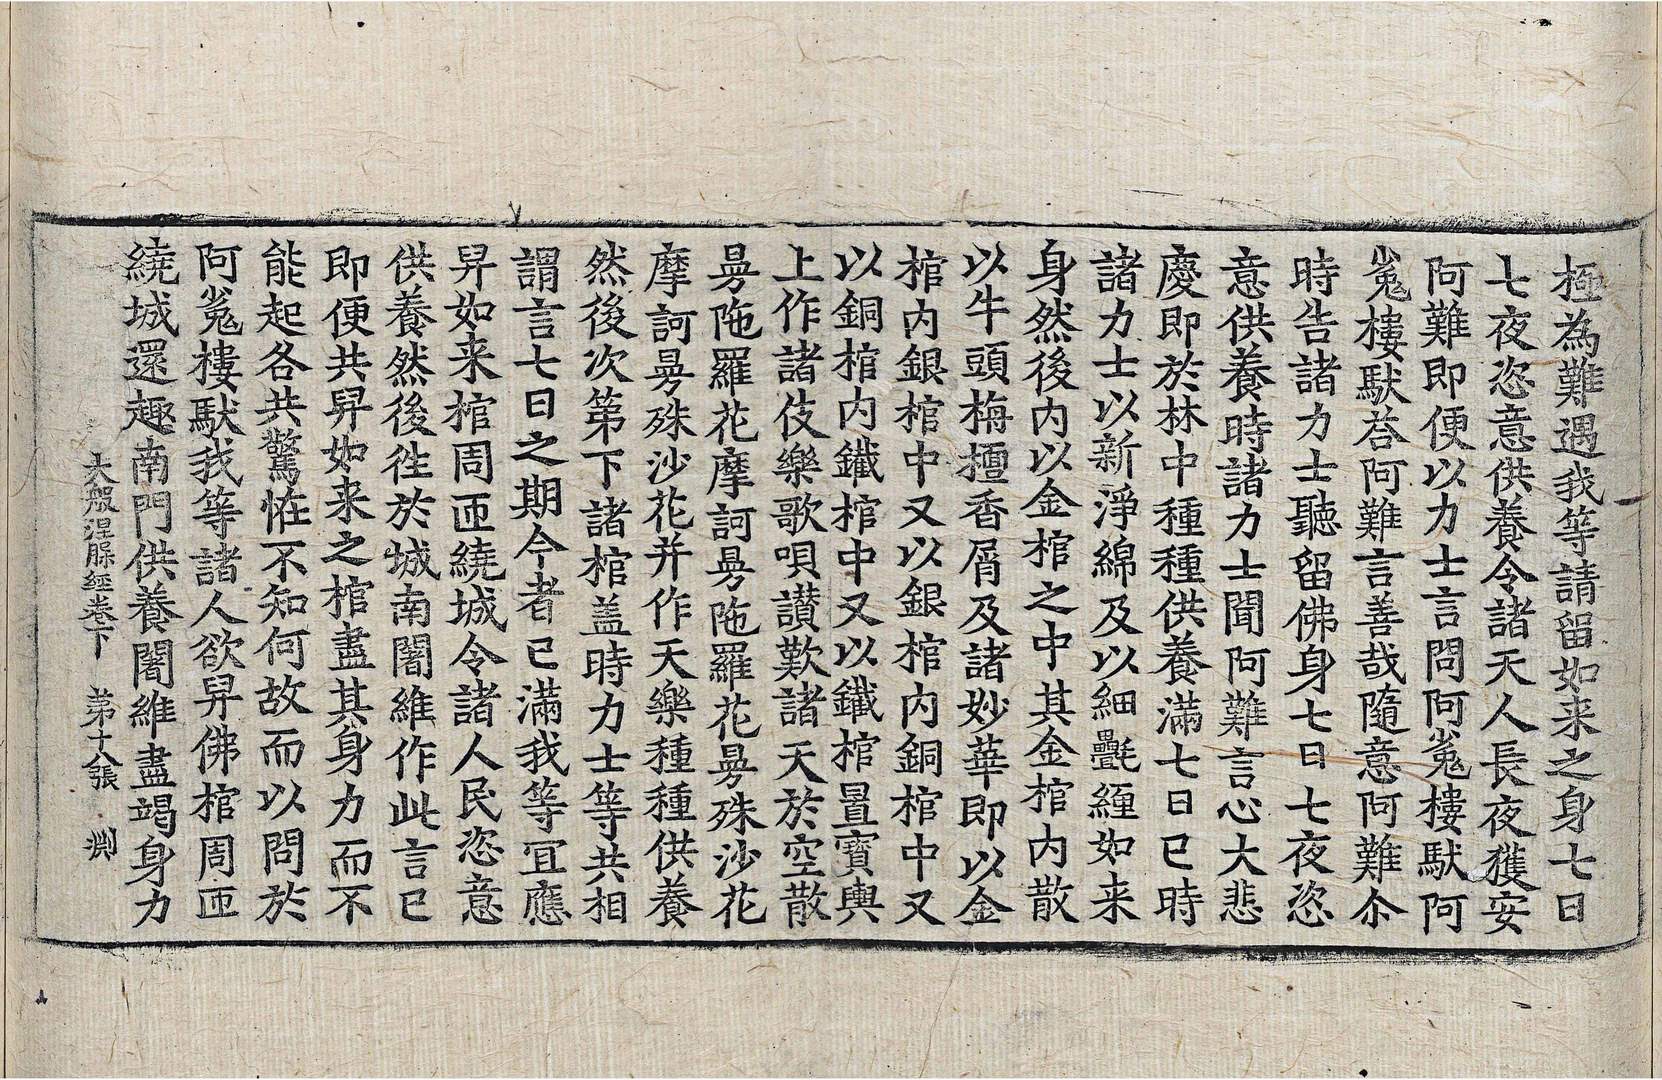 極為難遇我等請留如来之身七日
七夜恣意供養令諸天人長夜獲安
阿難即便以力士言問阿㝹樓馱阿
㝹樓馱荅阿難言善哉隨意阿難尒
時告諸力士聽留佛身七日七夜恣
意供養時諸力士聞阿難言心大悲
慶即於林中種種供養滿七日已時
諸力士以新淨綿及以細㲲纏如来
身然後内以金棺之中其金棺内散
以牛頭栴檀香屑及諸妙華即以金
棺内銀棺中又以銀棺内銅棺中又
以銅棺内鐵棺中又以鐵棺置寶輿
上作諸伎樂歌唄讃歎諸天於空散
曼陁羅花摩訶曼陁羅花曼殊沙花
摩訶曼殊沙花并作天樂種種供養
然後次第下諸棺盖時力士等共相
謂言七日之期今者已滿我等冝應
舁如来棺周迊繞城令諸人民恣意
供養然後往於城南闍維作此言已
即便共舁如来之棺盡其身力而不
能起各共驚恠不知何故而以問於
阿㝹樓馱我等諸人欲舁佛棺周迊
繞城還趣南門供養闍維盡竭身力
大般涅槃經卷下 第十八張 渕